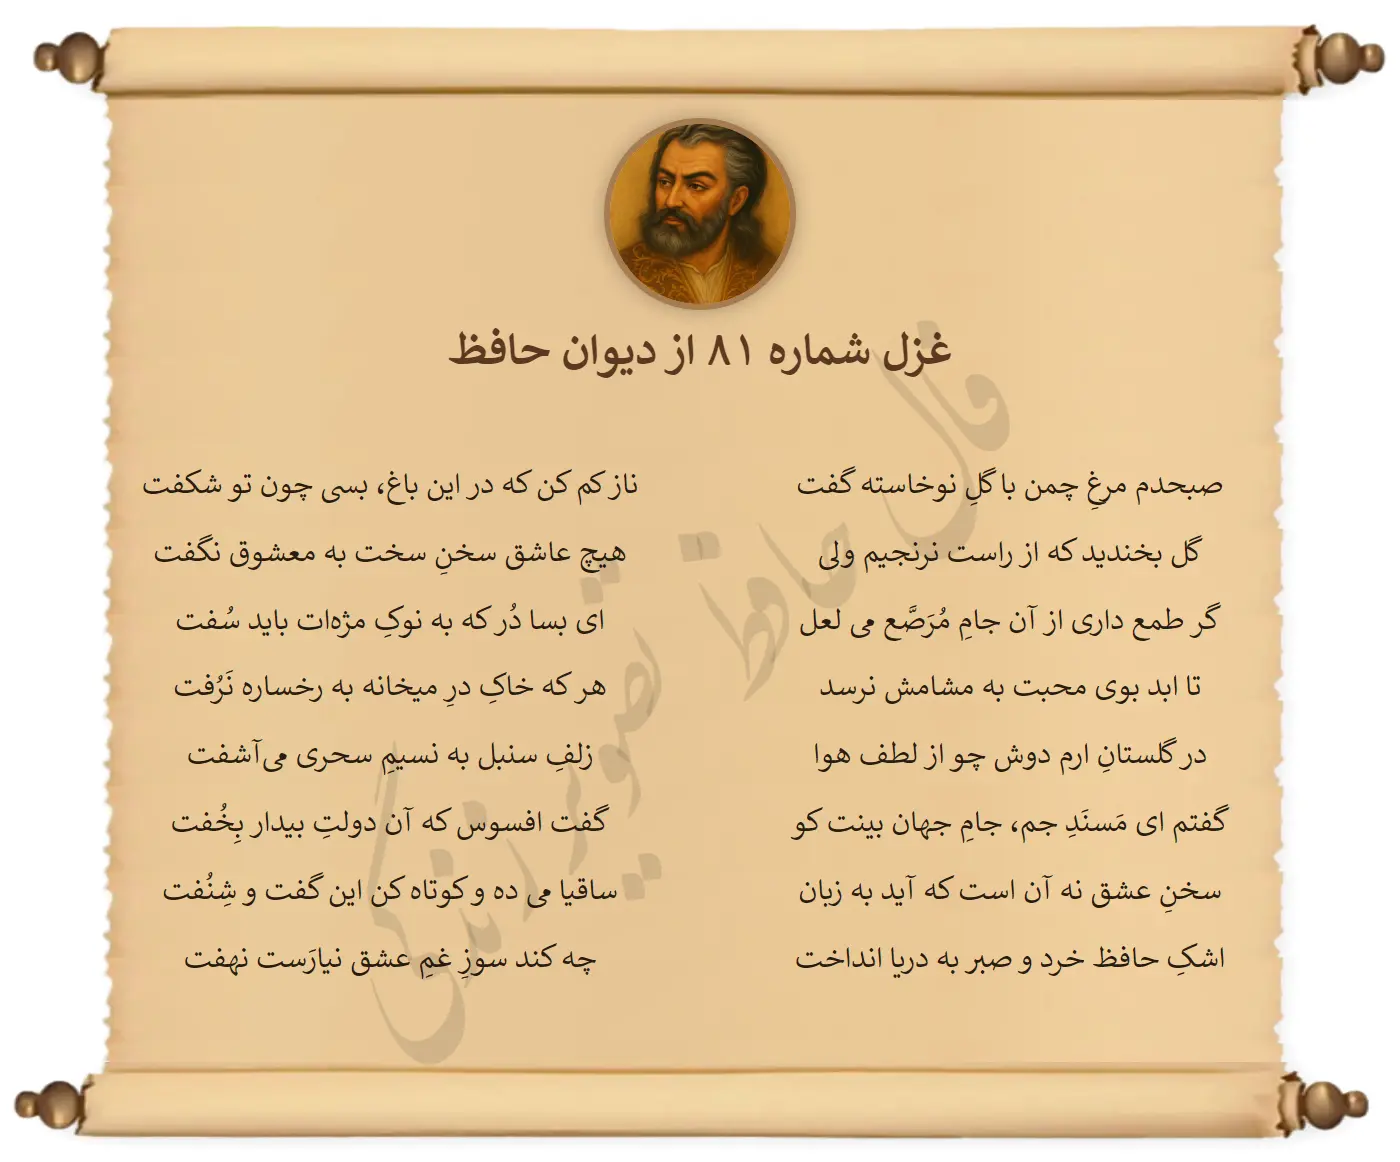 غزل شماره ۸۱ از دیوان حافظ
صبحدم مرغِ چمن با گلِ نوخاسته گفت
ناز کم کن که در این باغ، بسی چون تو شکفت
گل بخندید که از راست نرنجیم ولی
هیچ عاشق سخنِ سخت به معشوق نگفت
گر طمع داری از آن جامِ مُرَصَّع می لعل
ای بسا دُر که به نوکِ مژه‌ات باید سُفت
تا ابد بوی محبت به مشامش نرسد
هر که خاکِ درِ میخانه به رخساره نَرُفت
در گلستانِ ارم دوش چو از لطف هوا
زلفِ سنبل به نسیمِ سحری می‌آشفت
گفتم ای مَسنَدِ جم، جامِ جهان بینت کو
گفت افسوس که آن دولتِ بیدار بِخُفت
سخنِ عشق نه آن است که آید به زبان
ساقیا می ده و کوتاه کن این گفت و شِنُفت
اشکِ حافظ خرد و صبر به دریا انداخت
چه کند سوزِ غمِ عشق نیارَست نهفت
فال حافظ
تصویر زندگی